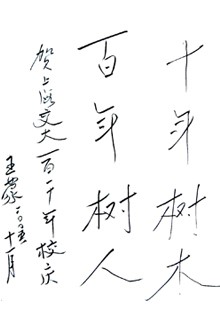 十年树木
百年树人
贺上海交大百一十年校庆
王蒙二〇〇五
十一月